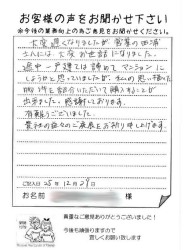 お客様の声をお聞かせ下さい
※今後の業務向上の為ご意見をお聞かせください。
大変遅くなりましたが 営業の田浦
さんには 大変お世話になりました。
途中 一戸建ては諦めて マンションに
しようかと思っていましたが、私の思い描いた
取り引きを言わせていただいて購入することが
出来ました。感謝しております。
有難うございました。
貴社の益々のご発展をお祈り申し上げます。
ご記入日 25年12月29日
お名前
様
貴重なご意見ありがとうございました!
今後も頑張りますので
宜しくお願い致します